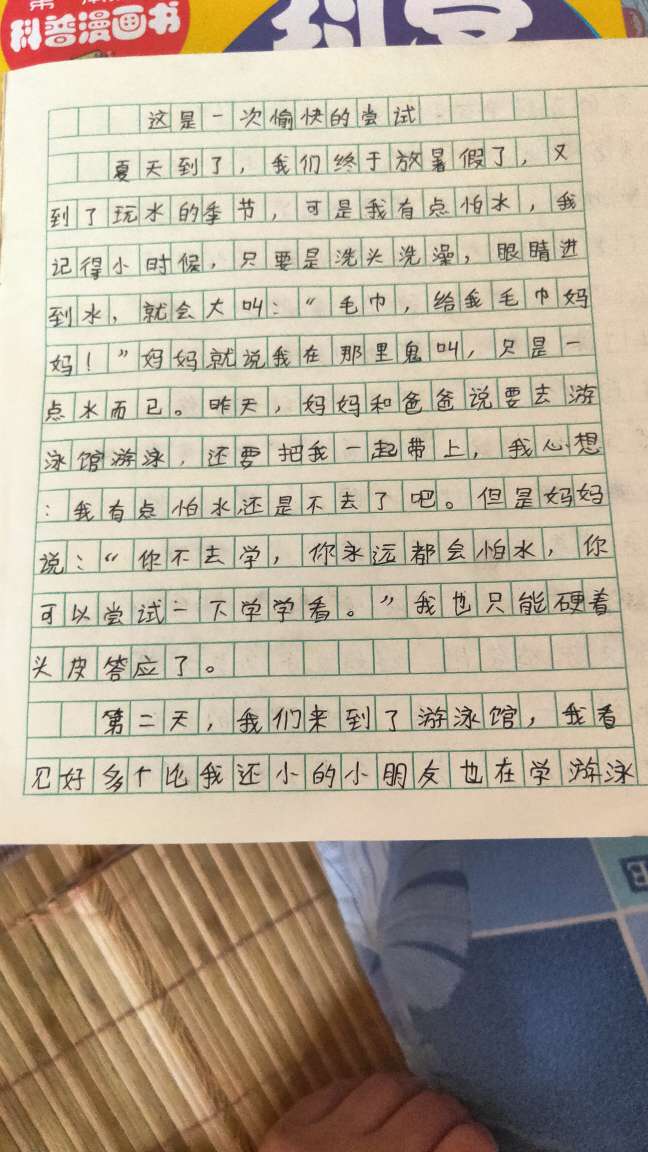 科普漫画书
这是一次愉快的尝试
夏天到了，我们终于放暑假了，又
到了玩水的季节，可是我有点怕水，我
记得小时候，只要是洗头洗澡，眼睛进
到水，就会大叫：“毛巾，给我毛巾妈
妈！”妈妈就说我在那里鬼叫，只是一
点水而已。昨天，妈妈和爸爸说要去游
泳馆游泳，还要把我一起带上，我心想
：我有点怕水，还是不去了吧。但是妈妈
说：“你不去学，你永远都会怕水，你
可以尝试一下学学看。”我也只能硬着
头皮答应了。
第二天，我们来到了游泳馆，我看
见好多个比我还小的小朋友也在学游泳